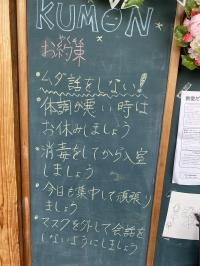 KUMON
お約束
・ムダ話をしない!
・体調が悪い時は
お休みしましょう
・消毒をしてから入室
しましょう
・今日も集中して頑張り
ましょう
・マスクを外して会話を
しないようにしましょう